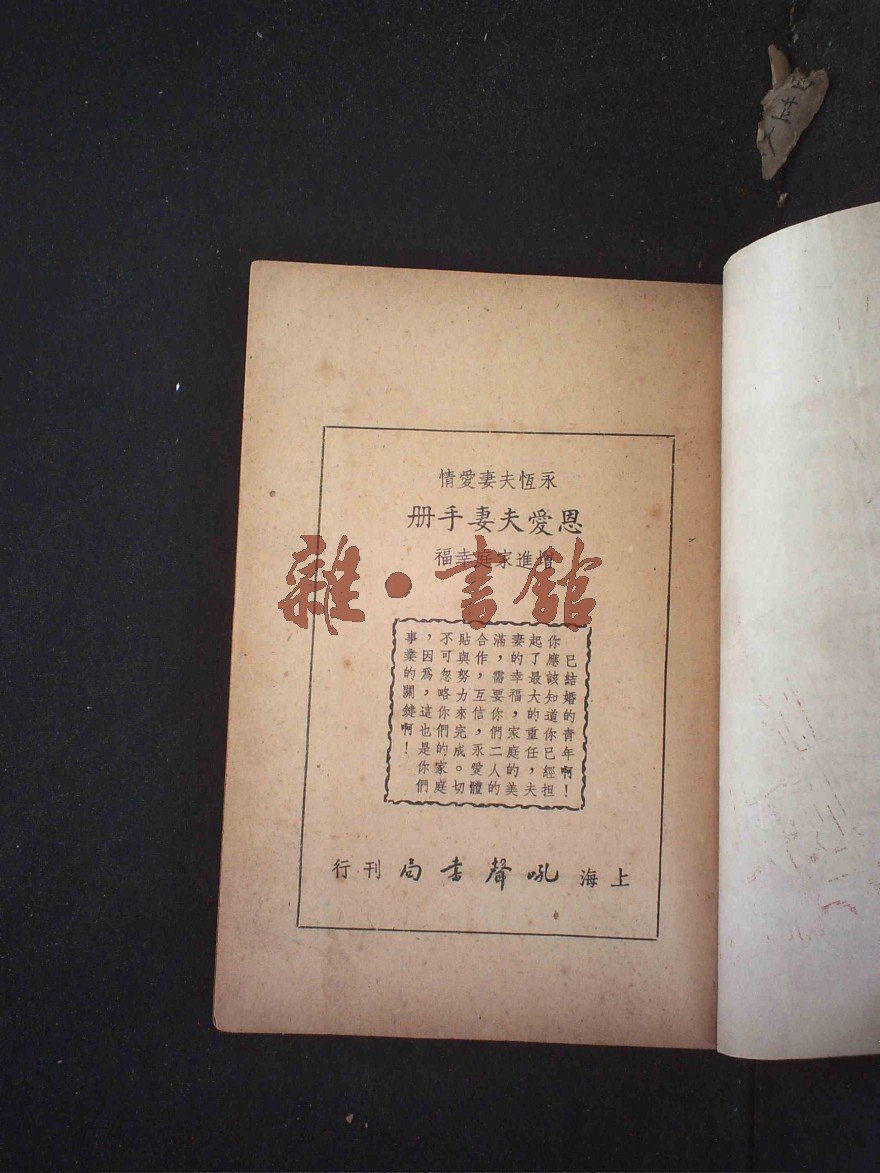 永恆夫妻愛情
恩愛夫妻手册
增進家庭幸福
雜·書館
已結婚的青年啊！
你應該知道你已經担
起了最大的重任，夫
妻的幸福，家庭的美
滿，需要你們二人的
合作，互信，永愛體
貼與努力來完成。切
不可忽略你們的家庭
，因爲，這也是你們
事業的關鍵啊！
上海吼聲書局刊行